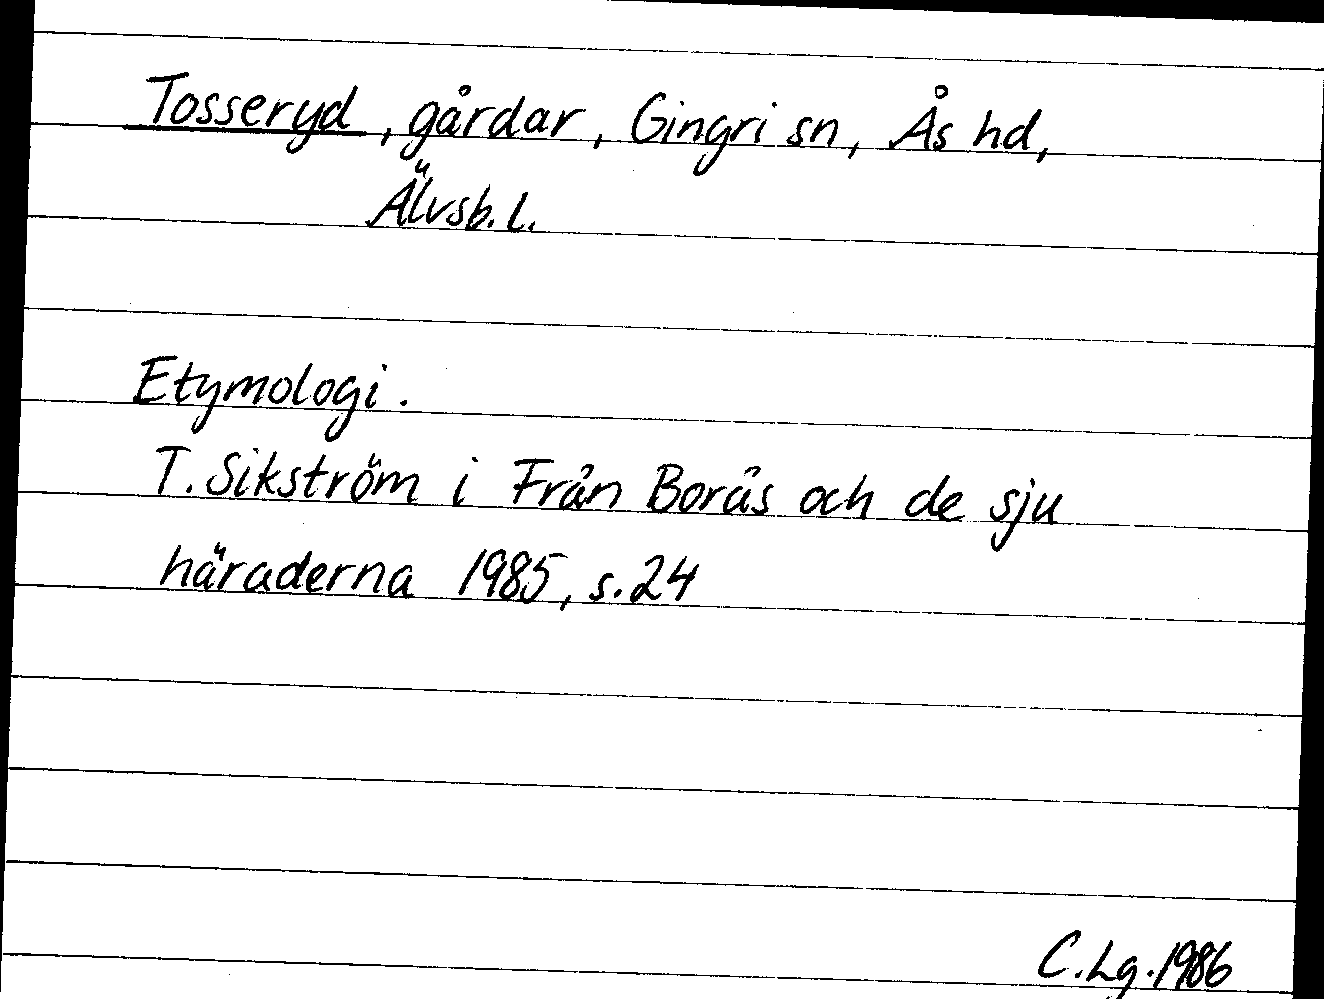 Tosseryd, gårdar, Gingri sn, Ås hd,
Älvsb. l.
Etymologi.
T. Sikström i Från Borås och de sju
häraderna 1985, s. 24
C. Lg. 1986